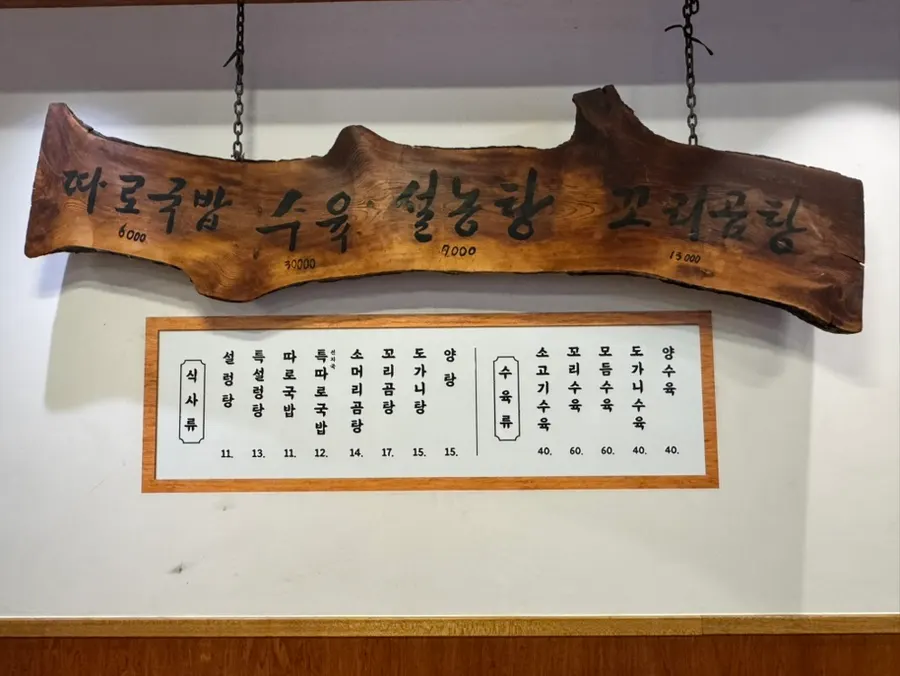 따로국밥 수육 설농탕 꼬리곰탕
6000 30000 7000 15000
식사류
설렁탕 11.
특설렁탕 13.
따로국밥 11.
특따로국밥 선지국 12.
소머리곰탕 14.
꼬리곰탕 17.
도가니탕 15.
양탕 15.
수육류
소고기수육 40.
꼬리수육 60.
모듬수육 60.
도가니수육 40.
양수육 40.